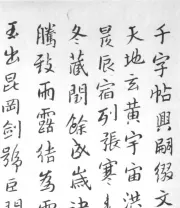 千字帖興嗣綴文
天地玄黃宇宙洪
昃辰宿列張寒
冬藏閏餘成歲
騰致雨露結為
玉出昆岡劍號巨